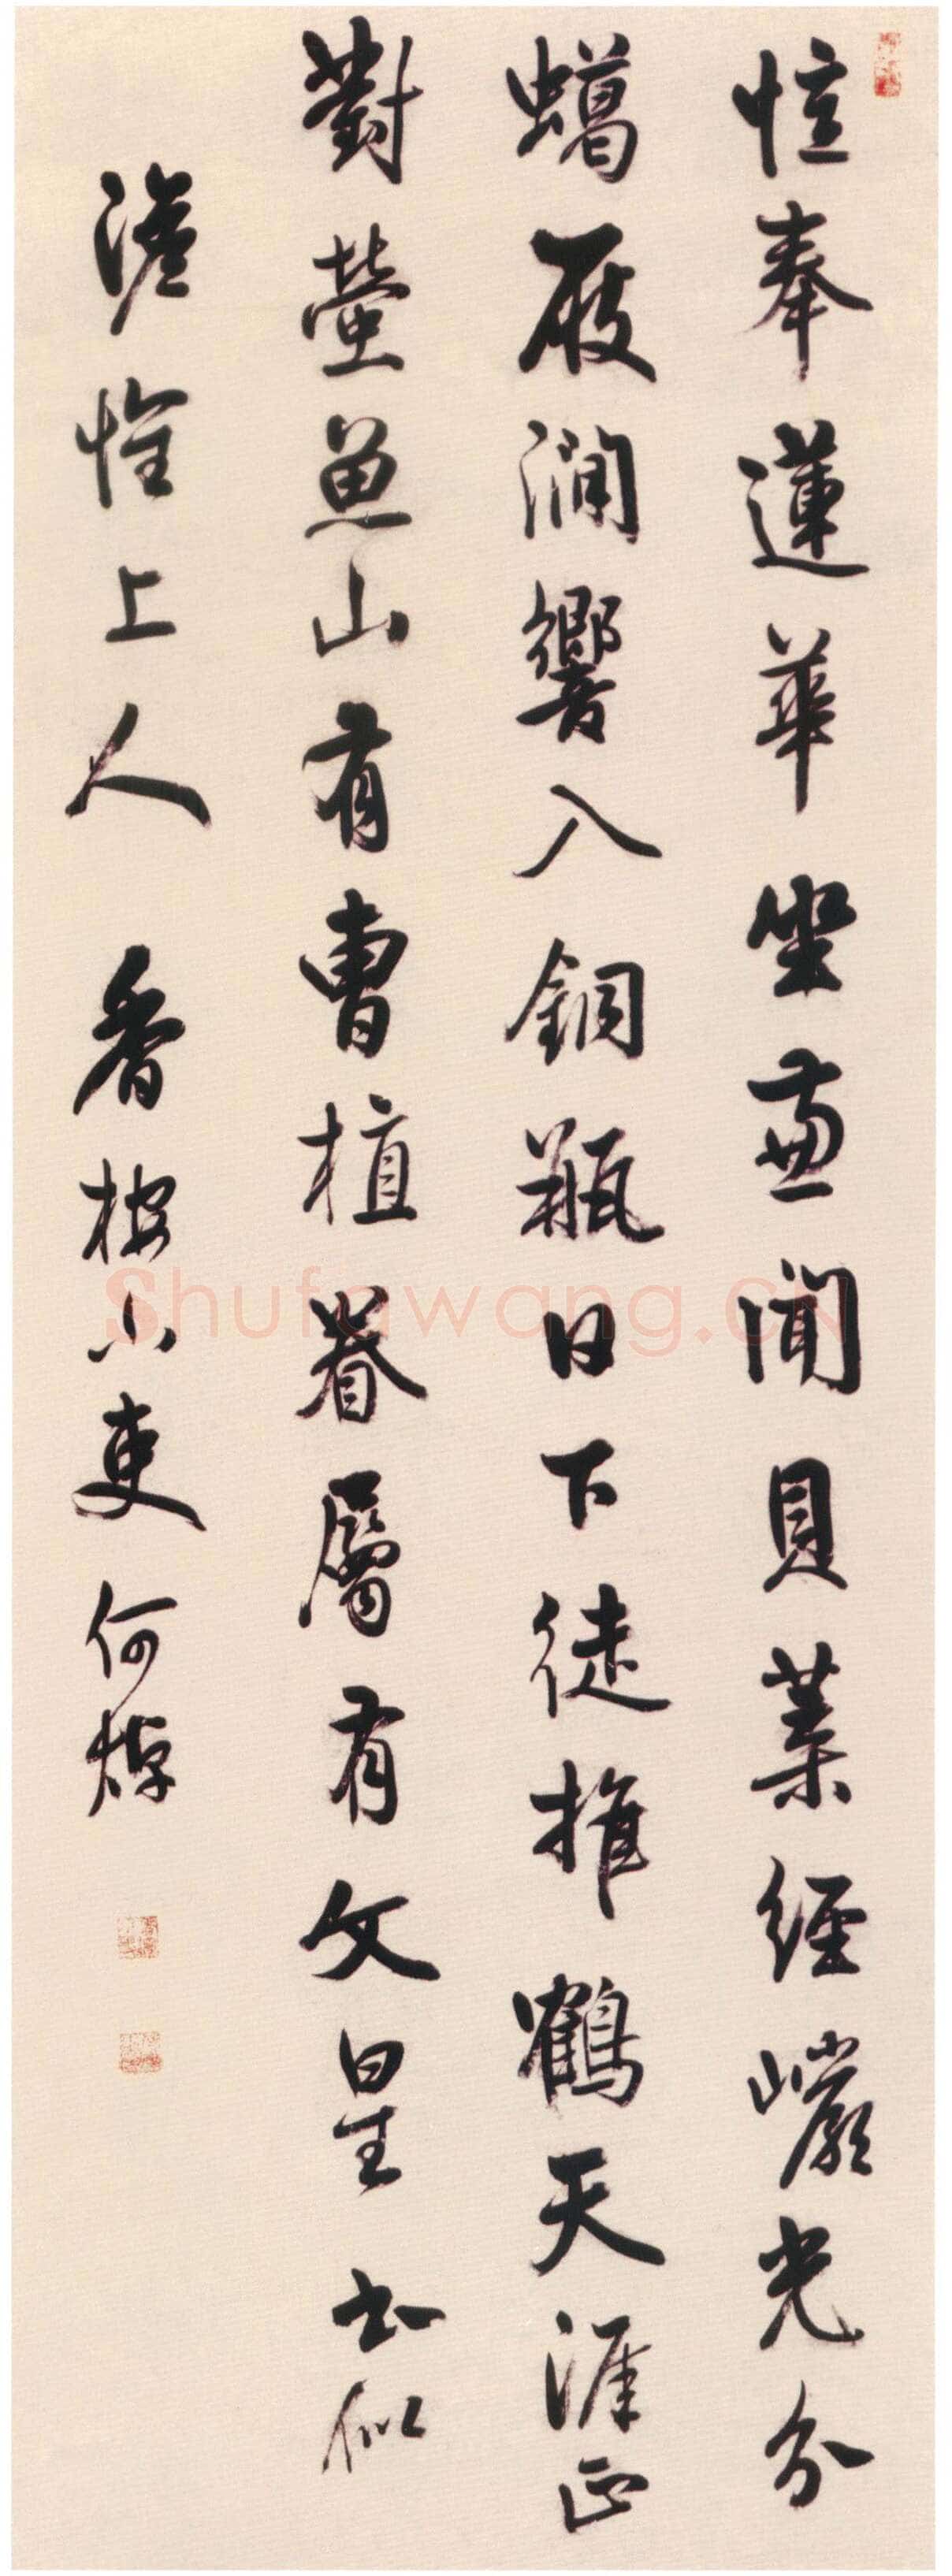 憶奉蓮華坐兼聞貝葉經巖光分
蠟屐澗響入銅瓶日下徒推鶴天涯正
對螢魚山有曹植眷屬有文星 書似
澹惟上人 香桉小吏何焯
Shufawang.CN